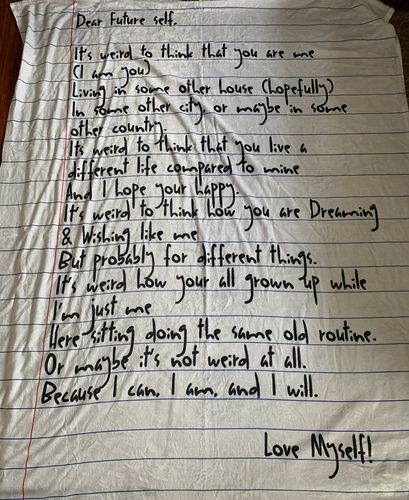 Dear Future self,
It's weird to think that you are me
(I am you)
Living in some other house (hopefully)
In some other city, or maybe in some
other country.
It's weird to think that you live a
different life compared to mine
And I hope your happy.
It's weird to think how you are Dreaming
& Wishing like me
But probably for different things.
It's weird how your all grown up while
I'm just me
Here sitting doing the same old routine.
Or maybe it's not weird at all.
Because I can, I am, and I will.
Love Myself!